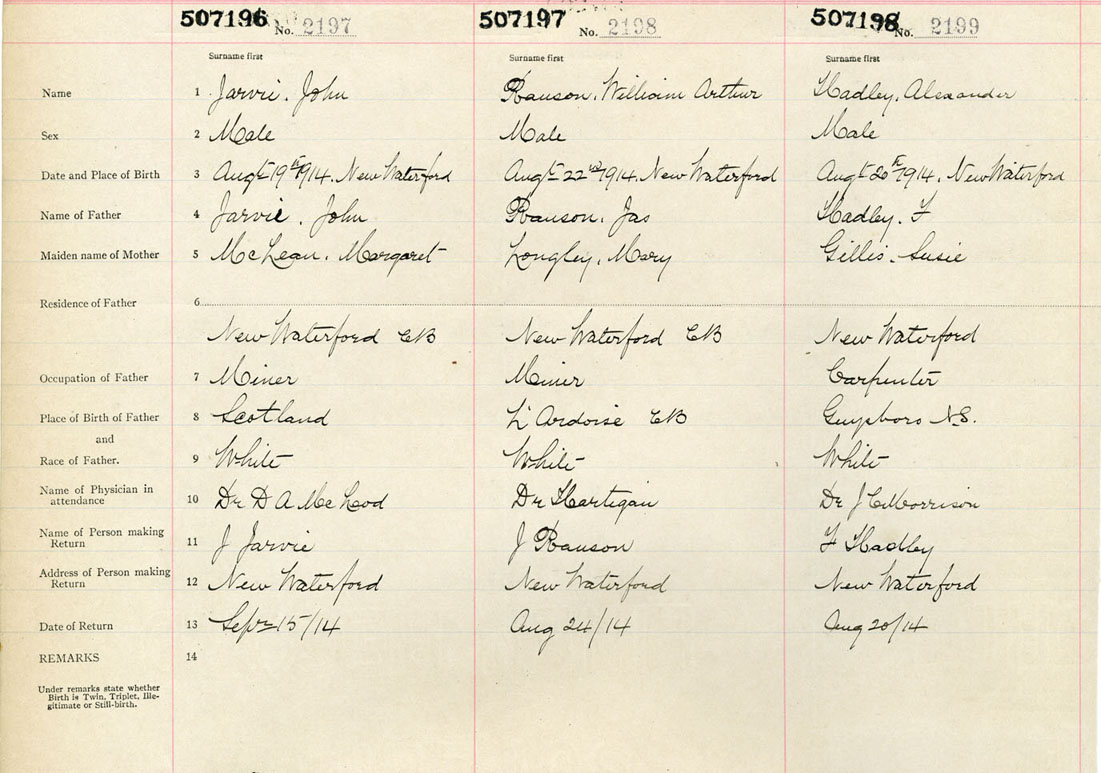 507196 No. 2197 507197 No. 2198 507198 No. 2199
Surname first Surname first Surname first
Name 1 Jarvie, John Ranson, William Arthur Hadley, Alexander
Sex 2 Male Male Male
Date and Place of Birth 3 Augt 19th 1914. New Waterford Augt 22nd 1914. New Waterford Augt 20th 1914. New Waterford
Name of Father 4 Jarvie, John Ranson, Jas Hadley, F
Maiden name of Mother 5 McLean, Margaret Longley, Mary Gillis, Susie
Residence of Father 6
New Waterford CB New Waterford CB New Waterford
Occupation of Father 7 Miner Miner Carpenter
Place of Birth of Father 8 Scotland L'Ardoise CB Guysboro N.S.
and
Race of Father. 9 White White White
Name of Physician in
attendance 10 Dr D A McLeod Dr Hartigan Dr J C Morrison
Name of Person making
Return 11 J Jarvie J Ranson F Hadley
Address of Person making
Return 12 New Waterford New Waterford New Waterford
Date of Return 13 Sept 15/14 Aug 24/14 Aug 20/14
REMARKS 14
Under remarks state whether
Birth is Twin, Triplet, Ille-
gitimate or Still-birth.